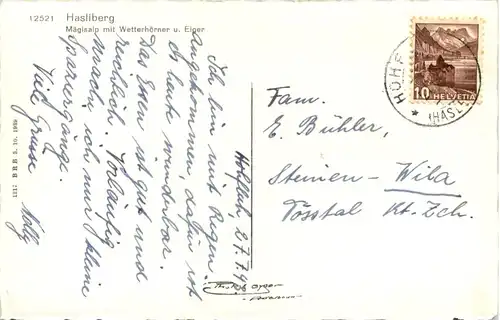 12521 Hasliberg
Mägisalp mit Wetterhörner u. Eiger
27.7.4
Ich bin mit Regen
angekommen, dafür ist
es heute wunderbar.
Das Essen ist gut und
reichlich. Vorläufig
mache ich nur kleine
Spaziergänge.
Viele Grüsse Nelly
1217 BRB 3. 10. 1939
10 HELVETIA
HOHF
(HASL
Fam.
E. Bühler,
Steinen-Wila
Tösstal Kt. Zch.